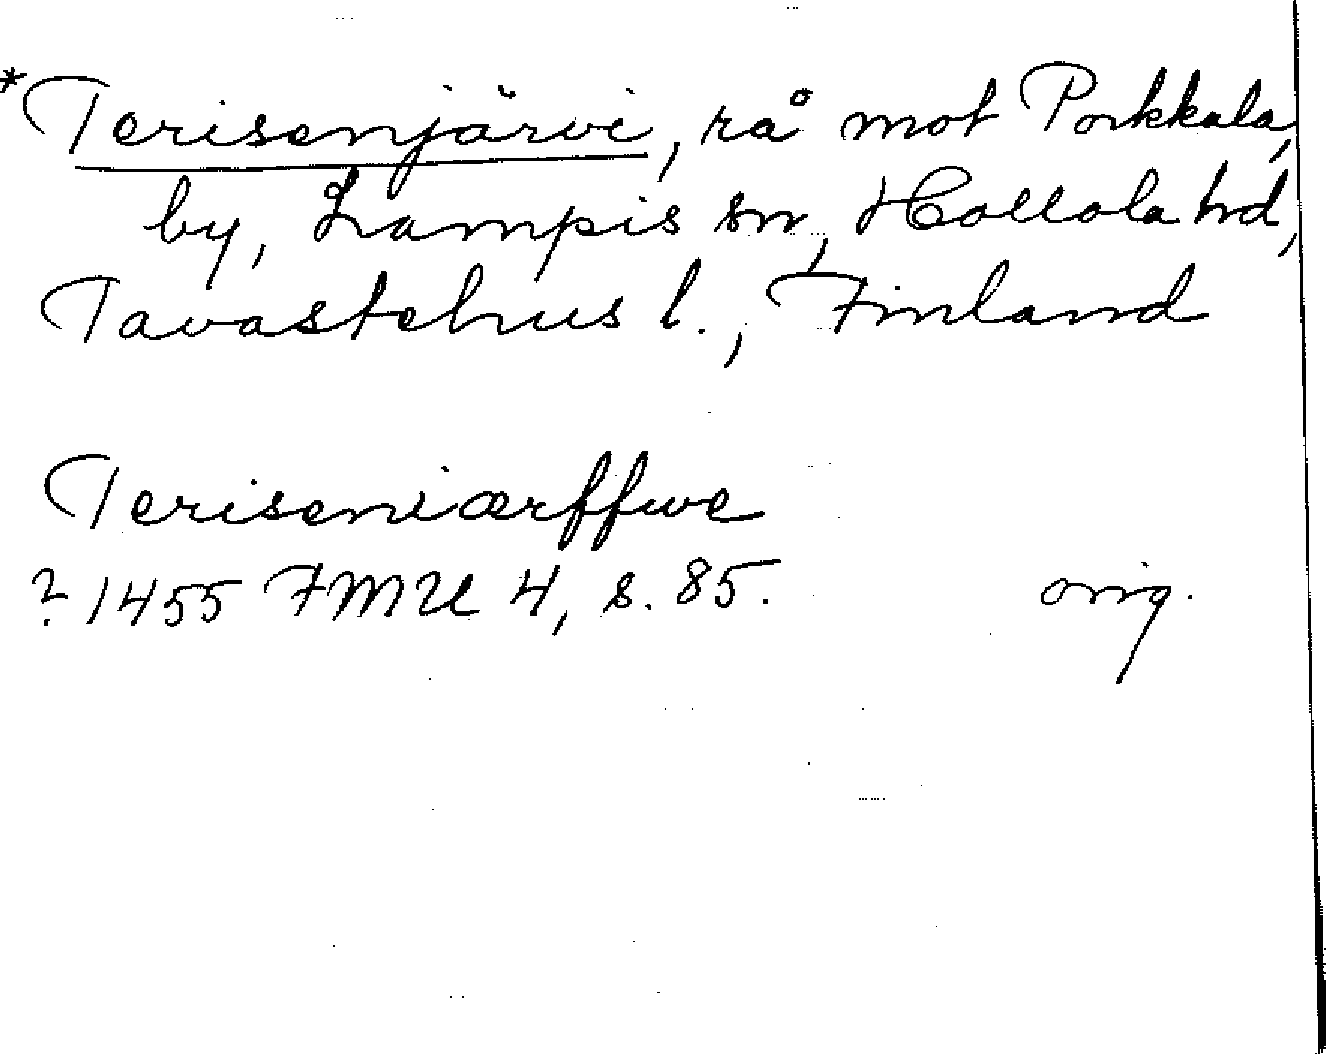 *Terisenjärvi, rå mot Porkkala,
by, Lampis sn, Hollola hd,
Tavastehus l., Finland
Teriseniærffwe
? 1455 FMU 4, s. 85. orig.